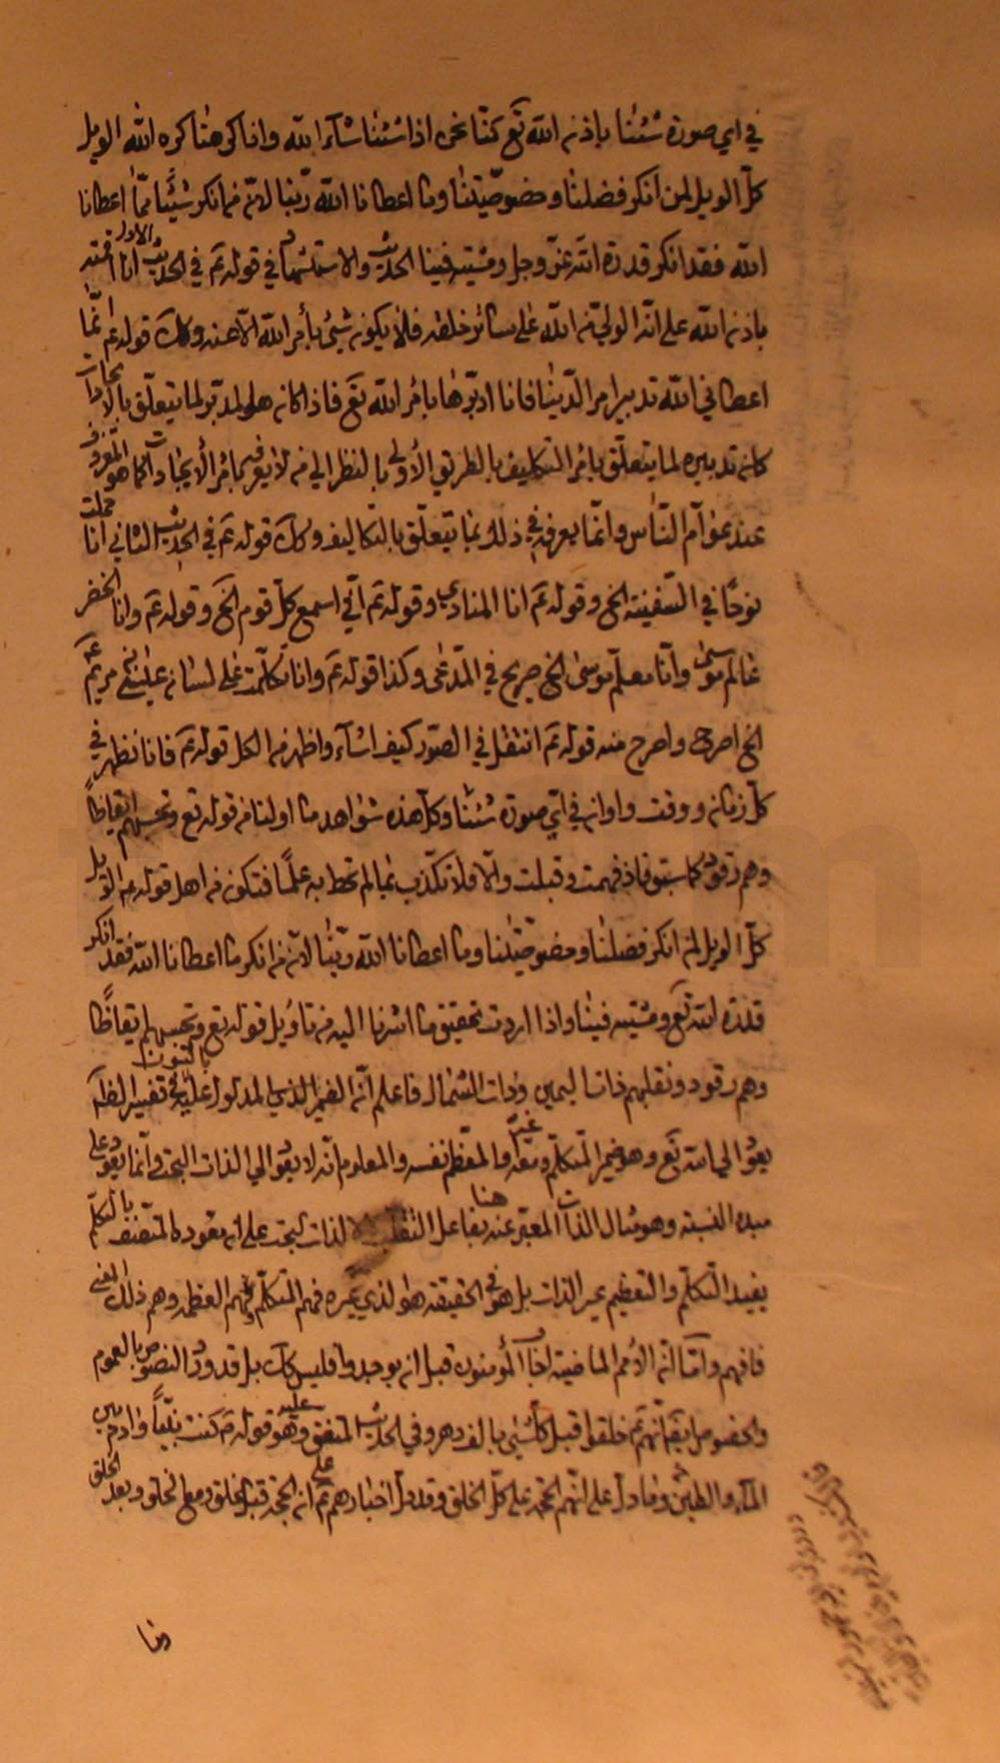 في اي صورة شئنا باذن الله تع كنا نحن اذا شئنا شآء الله واذا كرهنا كره الله الويل
كل الويل لمن انكر فضلنا وخصوصيتنا وما اعطانا الله ربنا لانه من انكر شيئا مما اعطانا
الله فقد انكر قدرة الله عز وجل ومشيته فينا الحديث والاستشهاد في قوله ع في الحديث الاول انا
باذن الله على انه الولي من الله على سائر خلقه فلا يكون شئ بأمر الله الا عنه وكك قوله ع انما
اعطاني الله تدبير امر الدنيا فانا ادبرها بامر الله تع فاذا كان هو المدبر لما يتعلق بالايجادات
كان تدبيره لما يتعلق بامر التكليف بالطريق الاولى بالنظر الى من لا يعرف امر الايجادات كما هو المعروف
عند عوام الناس وانما يعرف في ذلك بما يتعلق بالتكاليف وكك قوله ع في الحديث الثاني انا حملت
نوحا في السفينة الخ وقوله ع انا المنادي وقوله ع اني اسمع كل قوم الخ وقوله ع وانا الخضر
عالم موسى وانا معلم موسى الخ صريح في المدعى وكذا قوله ع وانا تكلمت على لسان عيسى بن مريم
الخ اصرح واصرح منه قوله ع انتقل في الصور كيف اشآء واظهر من الكل قوله ع فانا نظهر في
كل زمان ووقت واوان في اي صورة شئنا وكل هذه شواهد ما اولنا من قوله تع وتحسبهم ايقاظا
وهم رقود كما سبق فاذ فهمت وقبلت والا فلا تكذب بما لم تحط به علما فتكون من اهل قوله ع الويل
كل الويل لمن انكر فضلنا وخصوصيتنا وما اعطانا الله ربنا لانه من انكر ما اعطانا الله فقد انكر
قدرة الله تع ومشيته فينا واذا اردت تحقيق ما اشرنا اليه من تأويل قوله تع وتحسبهم ايقاظا
وهم رقود ونقلبهم ذات اليمين وذات الشمال فاعلم انه الضمير الذي المدلول عليه بالنون في تفسير الظاهر
يعود الى الله تع وهو ضمير المتكلم ومعه غيره والمعظم نفسه والمعلوم انه لا يعود الى الذات البحت وانما يعود على
مبدء النسبة وهو مثال الذات المعبر عنه هنا بفاعل التقلب لا الذات البحت على انه يعود بالتكلم
يفيد التكلم والتعظيم عير الذات بل هو في الحقيقة هو الذي فهم التكلم وفهم العظمة وهم ذلك المعنى
فافهم واما انه الامم الماضية المؤمنون قبل ان يوجدوا فليس كك بل قد ورد النصوص بالعموم
والخصوص انهم ع خلقوا قبل كل شئ بالف دهر وفي الحديث المتفق عليه وهو قوله ص كنت نبيا وادم بين
المآء والطين وما دل على انهم الحجة على كل الخلق وقد دل اخبارهم ع على ان الحجة قبل الخلق ومع الخلق وبعد الخلق